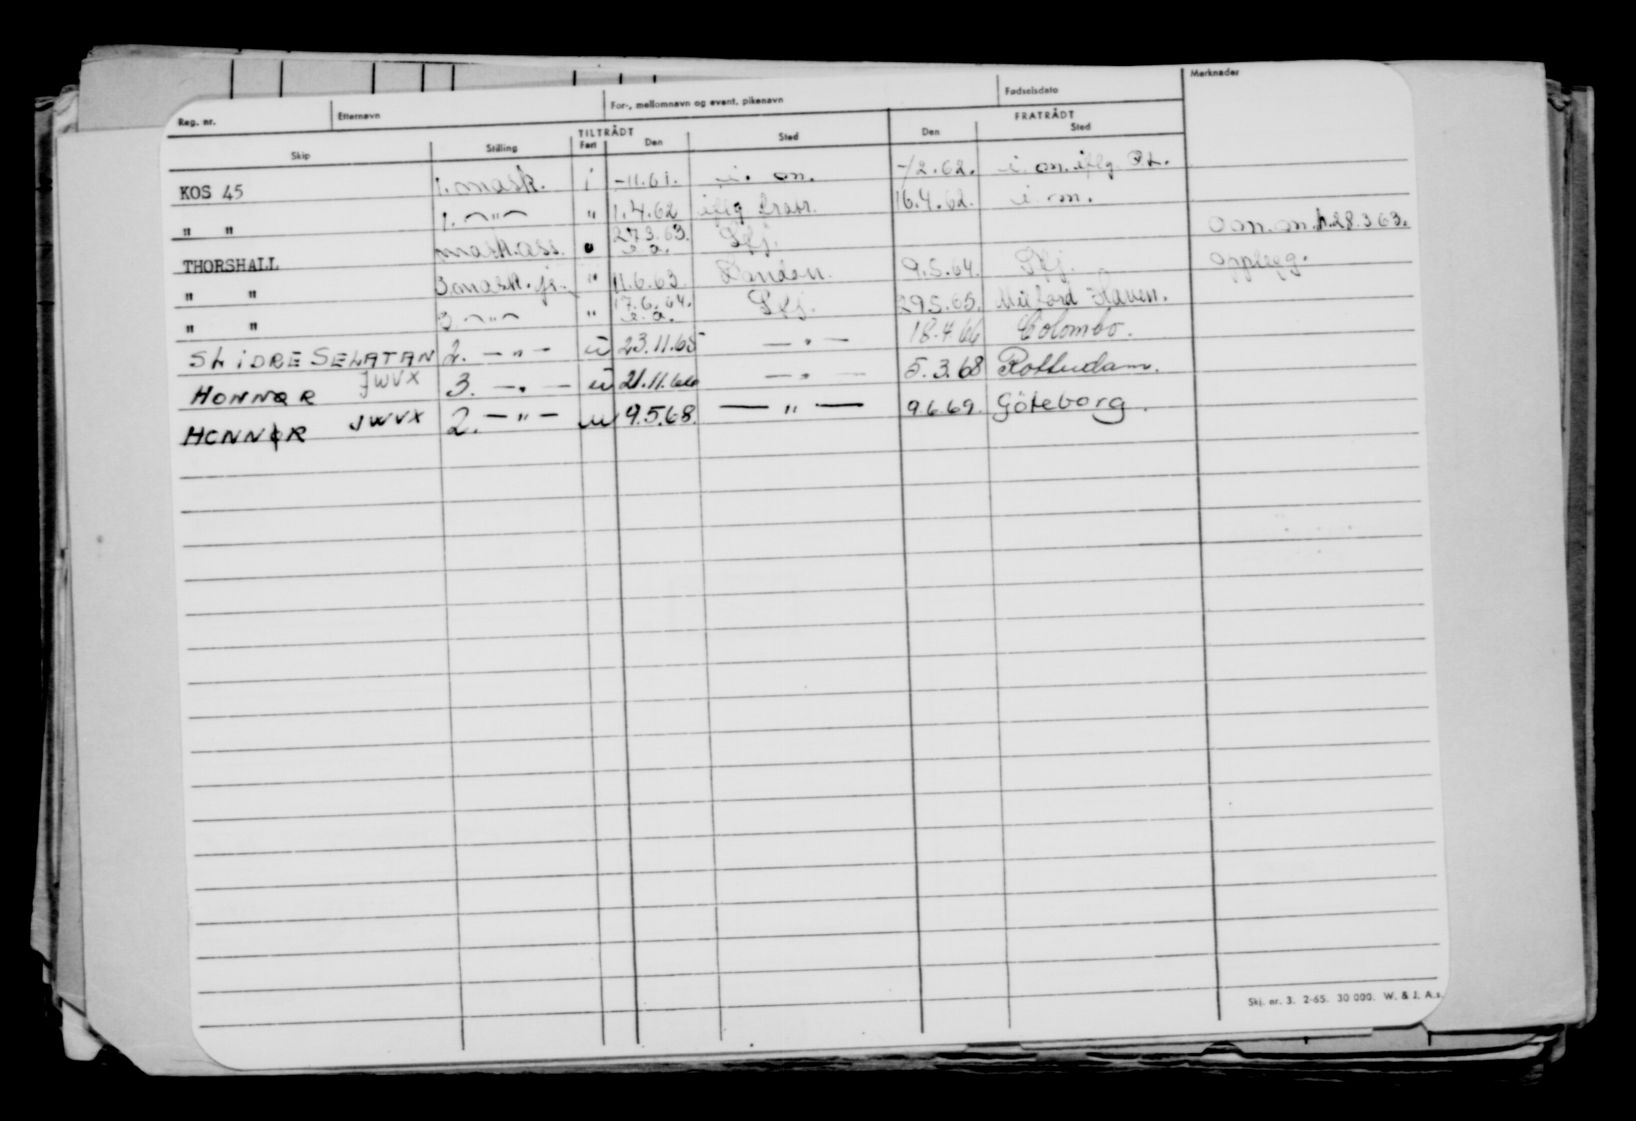 Reg. nr. Etternavn For-, mellomnavn og event. pikenavn Fødselsdato Merknader
TILTRÅDT FRATRÅDT
Skip Stilling Fart Den Sted Den Sted
KOS 45 1. mask. i -11.61. i. om. -/2.62. i. om. iflg. Pt.
" " 1. —"— " 1.4.62 iflg 16.4.62. i. om.
THORSHALL mask.ass. " 27.3.63. e.a. Sfj. 28.3.63.
" " 3 mask. jr. " 11.6.63. London. 9.5.64. Sfj. opplegg.
" " 3 —"— " 17.6.64. e.a. Sfj. 29.5.65. Milford Haven.
SLIDRE SELATAN 2. —"— u 23.11.65 —"— 18.4.66 Colombo.
HONNØR JWVX 3. —"— u 21.11.66 —"— 5.3.68 Rotterdam.
HONNØR JWVX 2. —"— u 9.5.68. —"— 9.6.69. Göteborg.
Skj. nr. 3. 2-65. 30 000. W. & J. A.s.